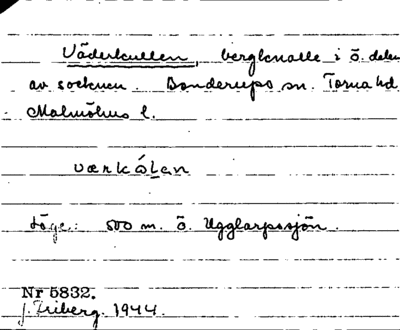 Väderkullen, bergknalle i ö. delen
av socknen. Bonderups sn. Torna hd
Malmöhus l.
værkólan
Läge: 500 m. ö. Ugglarpssjön.
Nr 5832.
J. Friberg. 1944.